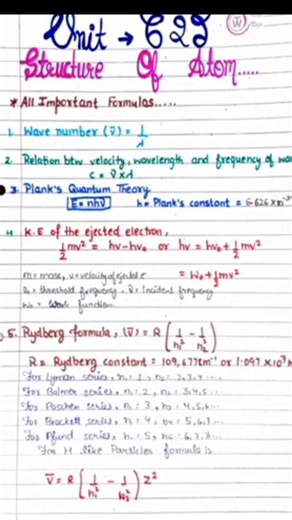 Unit → C2
Structure Of Atom.....
* All Important Formulas.....
1. Wave number (v̄) = 1/λ
2. Relation btw velocity, wavelength and frequency of wa
c = ν×λ
3. Plank's Quantum Theory
E = nhν h = Plank's constant = 6.626×10
4. K.E of the ejected electron,
1/2 mv² = hν - hν₀ or hν = hν₀ + 1/2 mv²
m = mass, v = velocity of ejected e = W₀ + 1/2 mv²
ν₀ = threshold frequency, ν = Incident frequency
W₀ = Work function
5. Rydberg formula, (v̄) = R (1/n₁² - 1/n₂²)
R = Rydberg constant = 109,677 cm⁻¹ or 1.097 ×10⁷
For Lyman series, n₁ = 1, n₂ = 2,3,4....
For Balmer series, n₁ = 2, n₂ = 3,4,5...
For Paschen series, n₁ = 3, n₂ = 4,5,6...
For Brackett series, n₁ = 4, n₂ = 5,6,7...
For Pfund series, n₁ = 5, n₂ = 6,7,8...
For H like Particles formula is
v̄ = R (1/n₁² - 1/n₂²) Z²